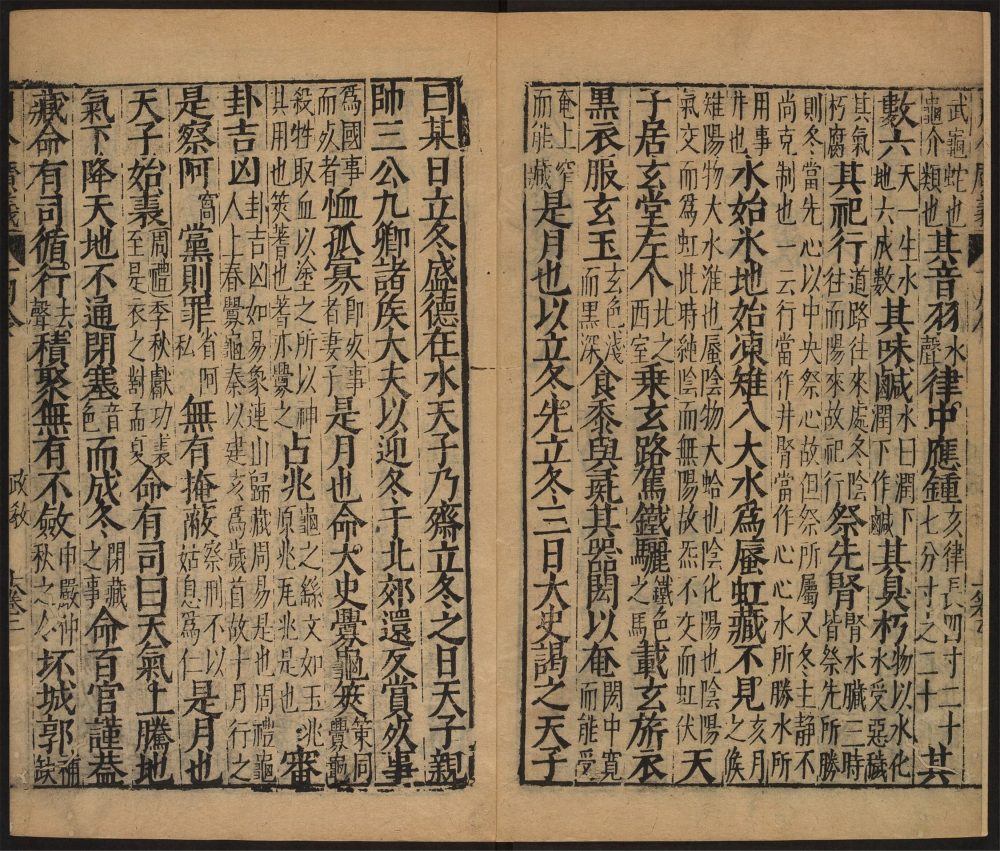 武龜蛇也龜介類也其音羽水聲律中應鍾亥律長四寸二十七分寸之二十其
數六天一生水地六成數其味鹹水曰潤下潤下作鹹其臭朽物以水化水受惡穢
其氣朽腐其祀行道路往來處冬陰往而陽來故祀行祭先腎腎水臟三時皆祭先所勝
則冬當先心以中央祭心故但祭所屬又冬主靜不尚克制也一云行當作井腎當作心心水所勝水所
用事井也水始氷地始凍雉入大水爲蜃虹藏不見亥月之候
雉陽物大水淮也蜃陰物大蛤也陰化陽也陰陽氣交而爲虹此時純陰而無陽故炁不交而虹伏天
子居玄堂左个北之西室乘玄路駕鐵驪鐵色之馬載玄旂衣
黑衣服玄玉玄色淺而黑深食黍與彘其器閎以奄閎中寬而能受
奄上窄而能藏是月也以立冬先立冬三日大史謁之天子
曰某日立冬盛德在水天子乃齋立冬之日天子親
帥三公九卿諸侯大夫以迎冬于北郊還反賞死事
爲國事而死者恤孤寡即死事者妻子是月也命大史釁龜筴策同釁龜
殺牲取血以塗之所以神其用也筴蓍也蓍亦釁之占兆龜之絲文如玉兆原兆瓦兆是也審
卦吉凶卦吉凶如易象連山歸藏周易是也周禮龜人上春釁龜秦以建亥爲歲首故十月行之
是察阿黨則罪省阿私無有掩蔽察刑不以姑息爲仁是月也
天子始裘周禮季秋獻功裘至是衣之對孟夏命有司曰天氣上騰地
氣下降天地不通閉塞音色而成冬閉藏之事命百官謹蓋
藏命有司循行去聲積聚無有不斂申嚴仲秋之令坏城郭補缺